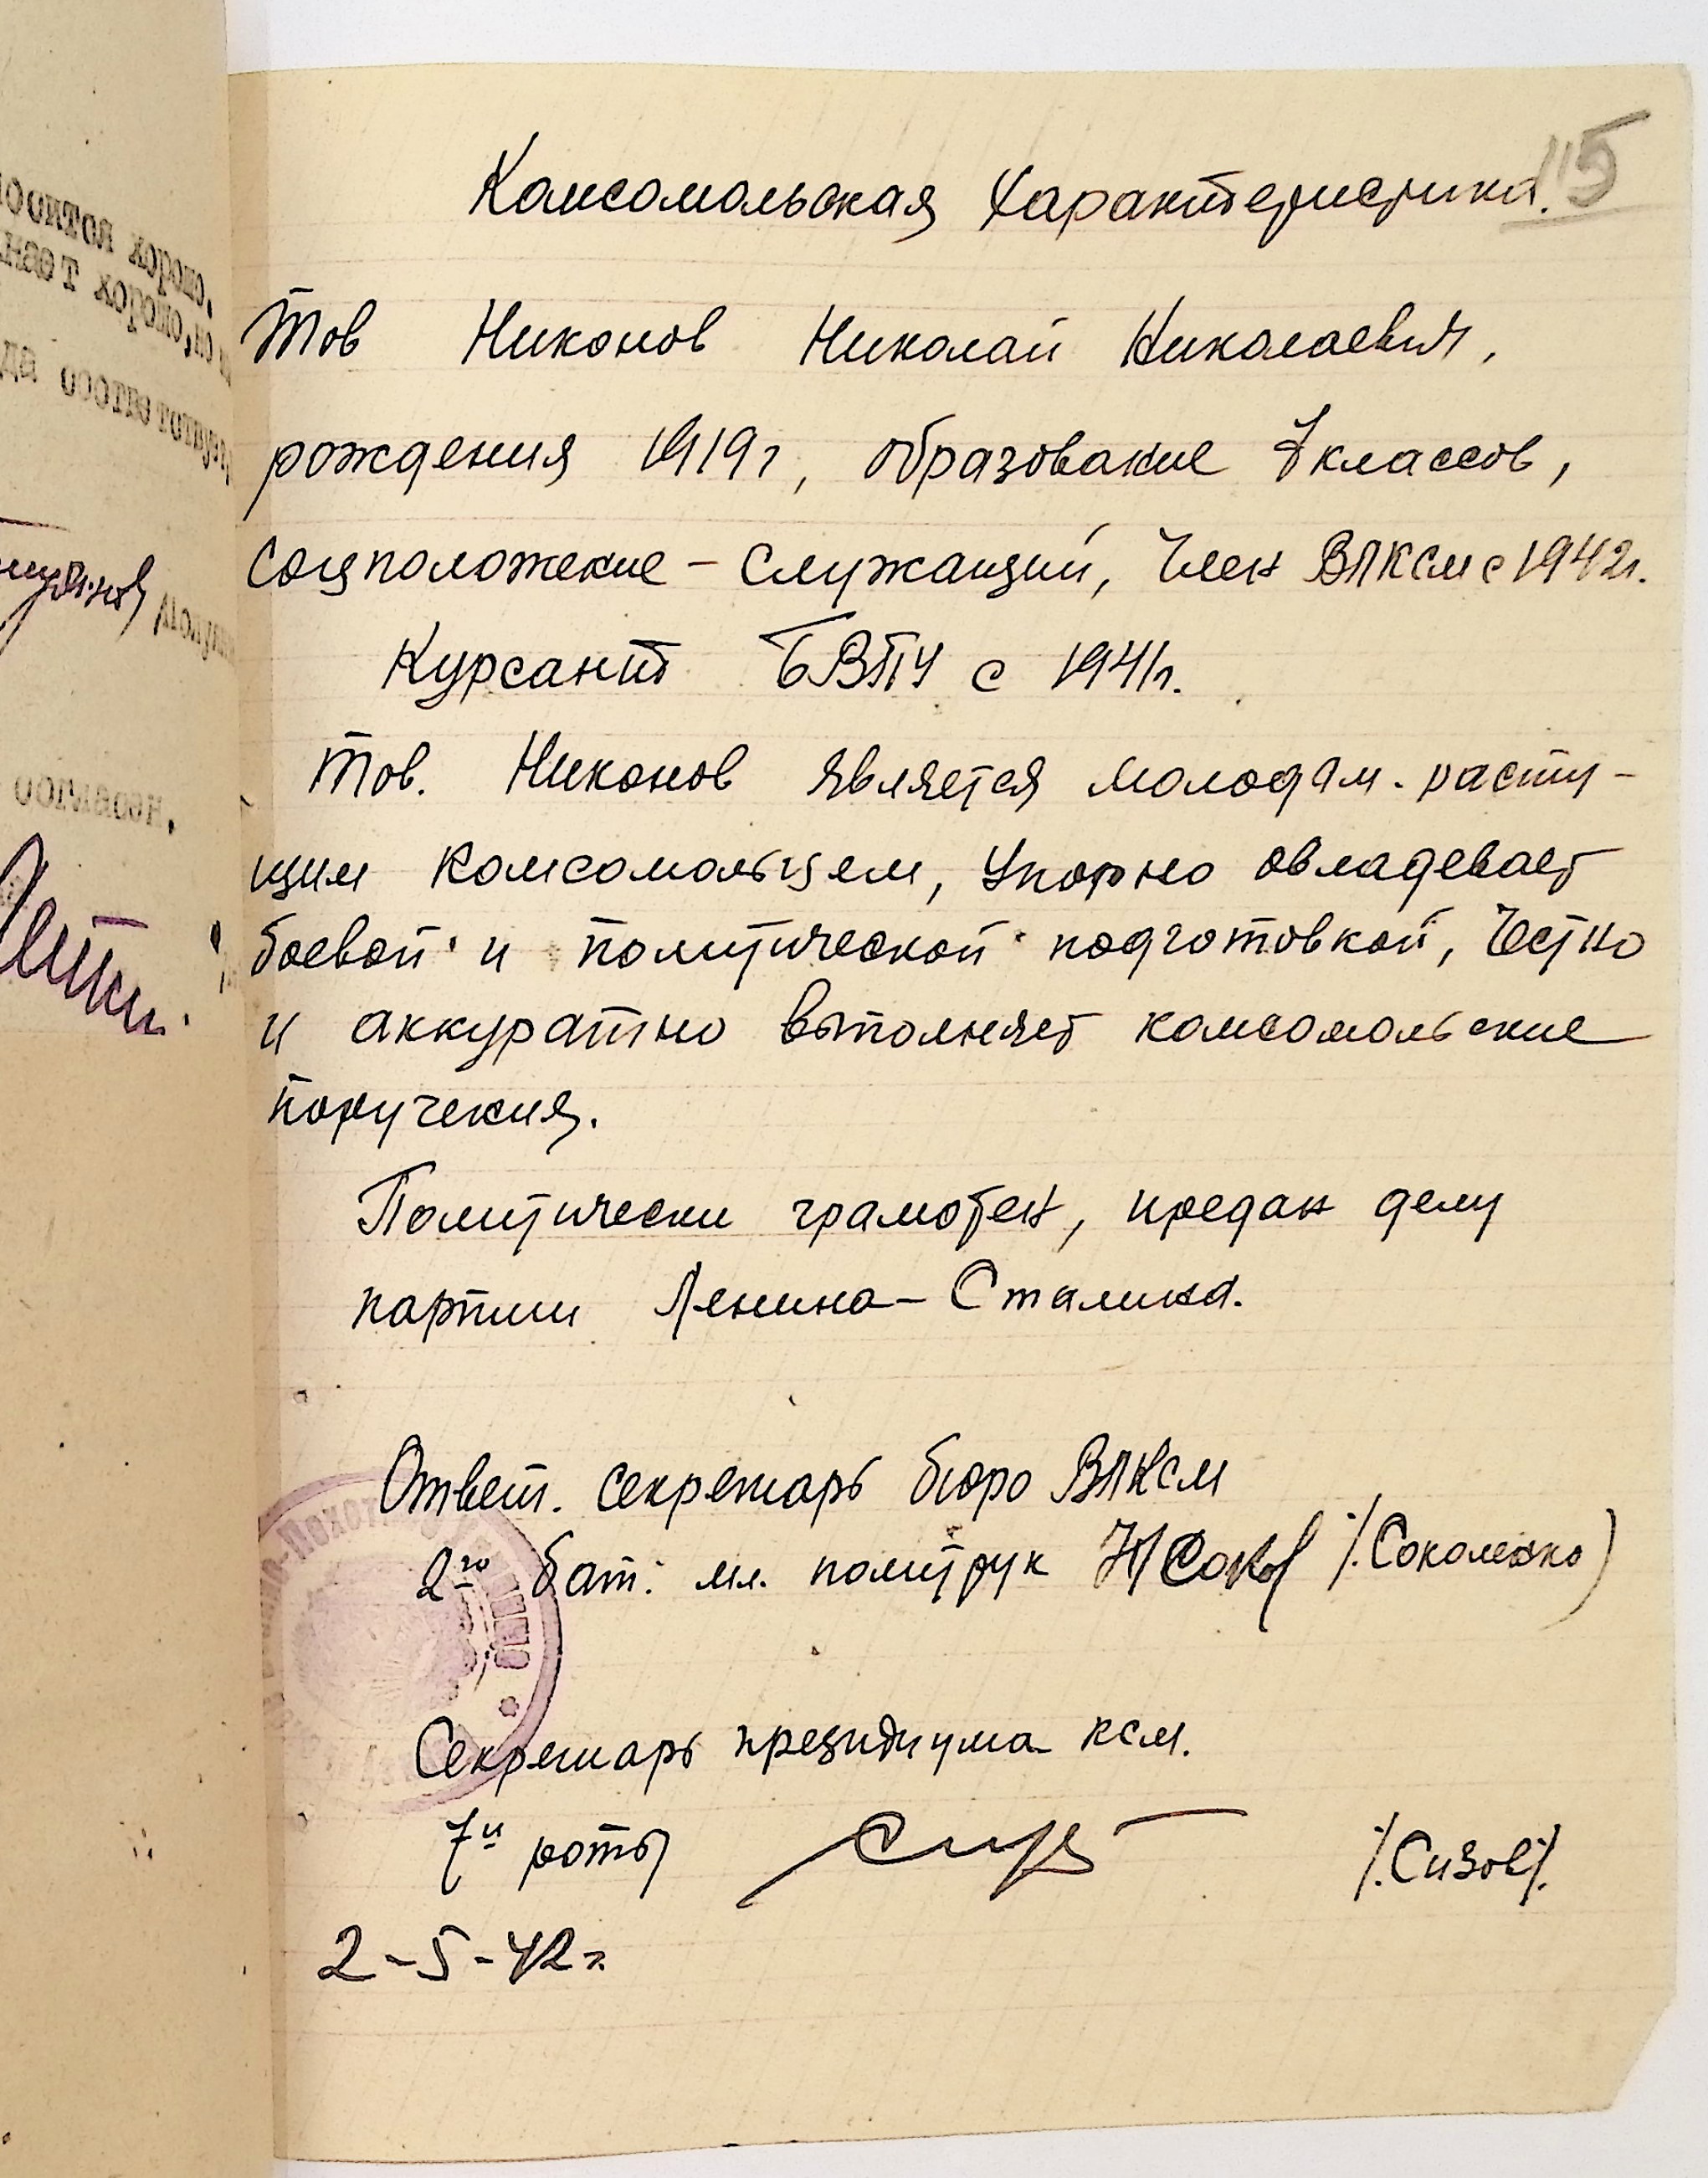 115
Комсомольская Характеристика.
Тов Никонов Николай Николаевич,
рождения 1919г, образование 7 классов,
соцположение – служащий, член ВЛКСМ с 1942г.
Курсант БВПУ с 1941г.
Тов. Никонов является молодым расту-
щим комсомольцем, упорно овладевает
боевой и политической подготовкой, честно
и аккуратно выполняет комсомольские
поручения.
Политически грамотен, предан делу
партии Ленина – Сталина.
Ответ. секретарь бюро ВЛКСМ
2го бат. мл. политрук /.Соколенко)
Секретарь президиума ксм.
7й роты /.Сизов/.
2-5-42г.